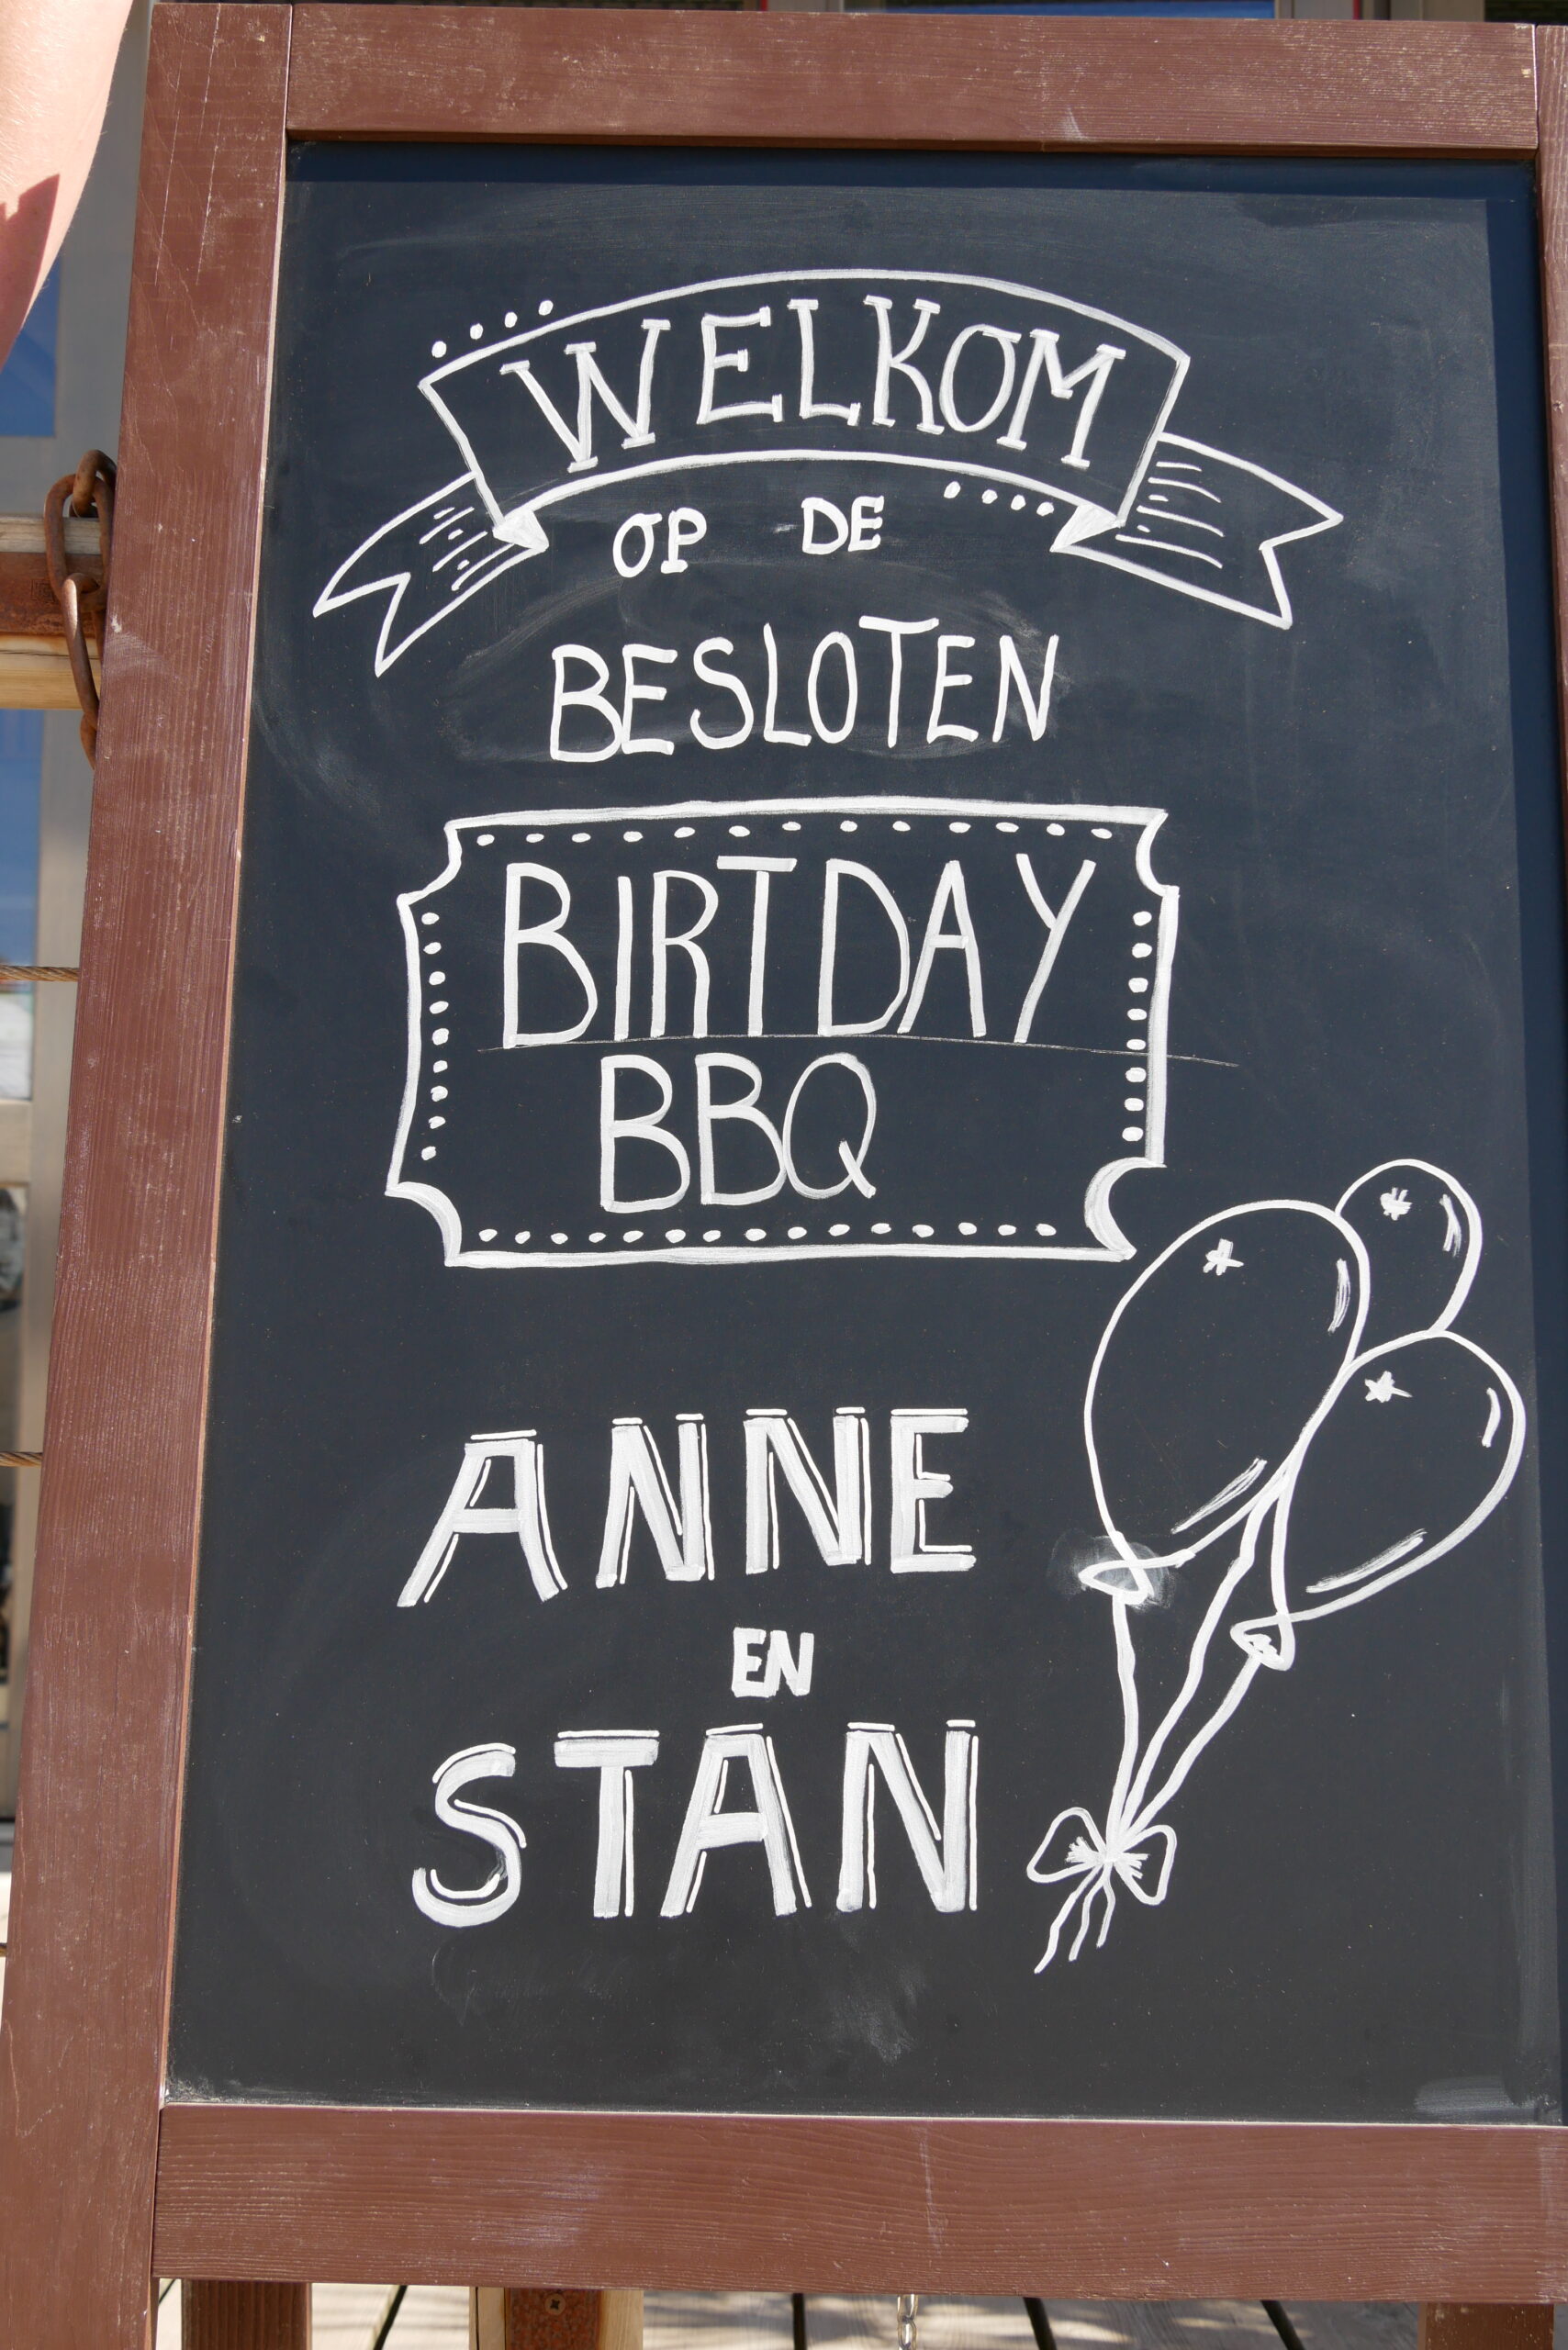 WELKOM
OP DE
BESLOTEN
BIRTDAY
BBQ
ANNE
EN
STAN